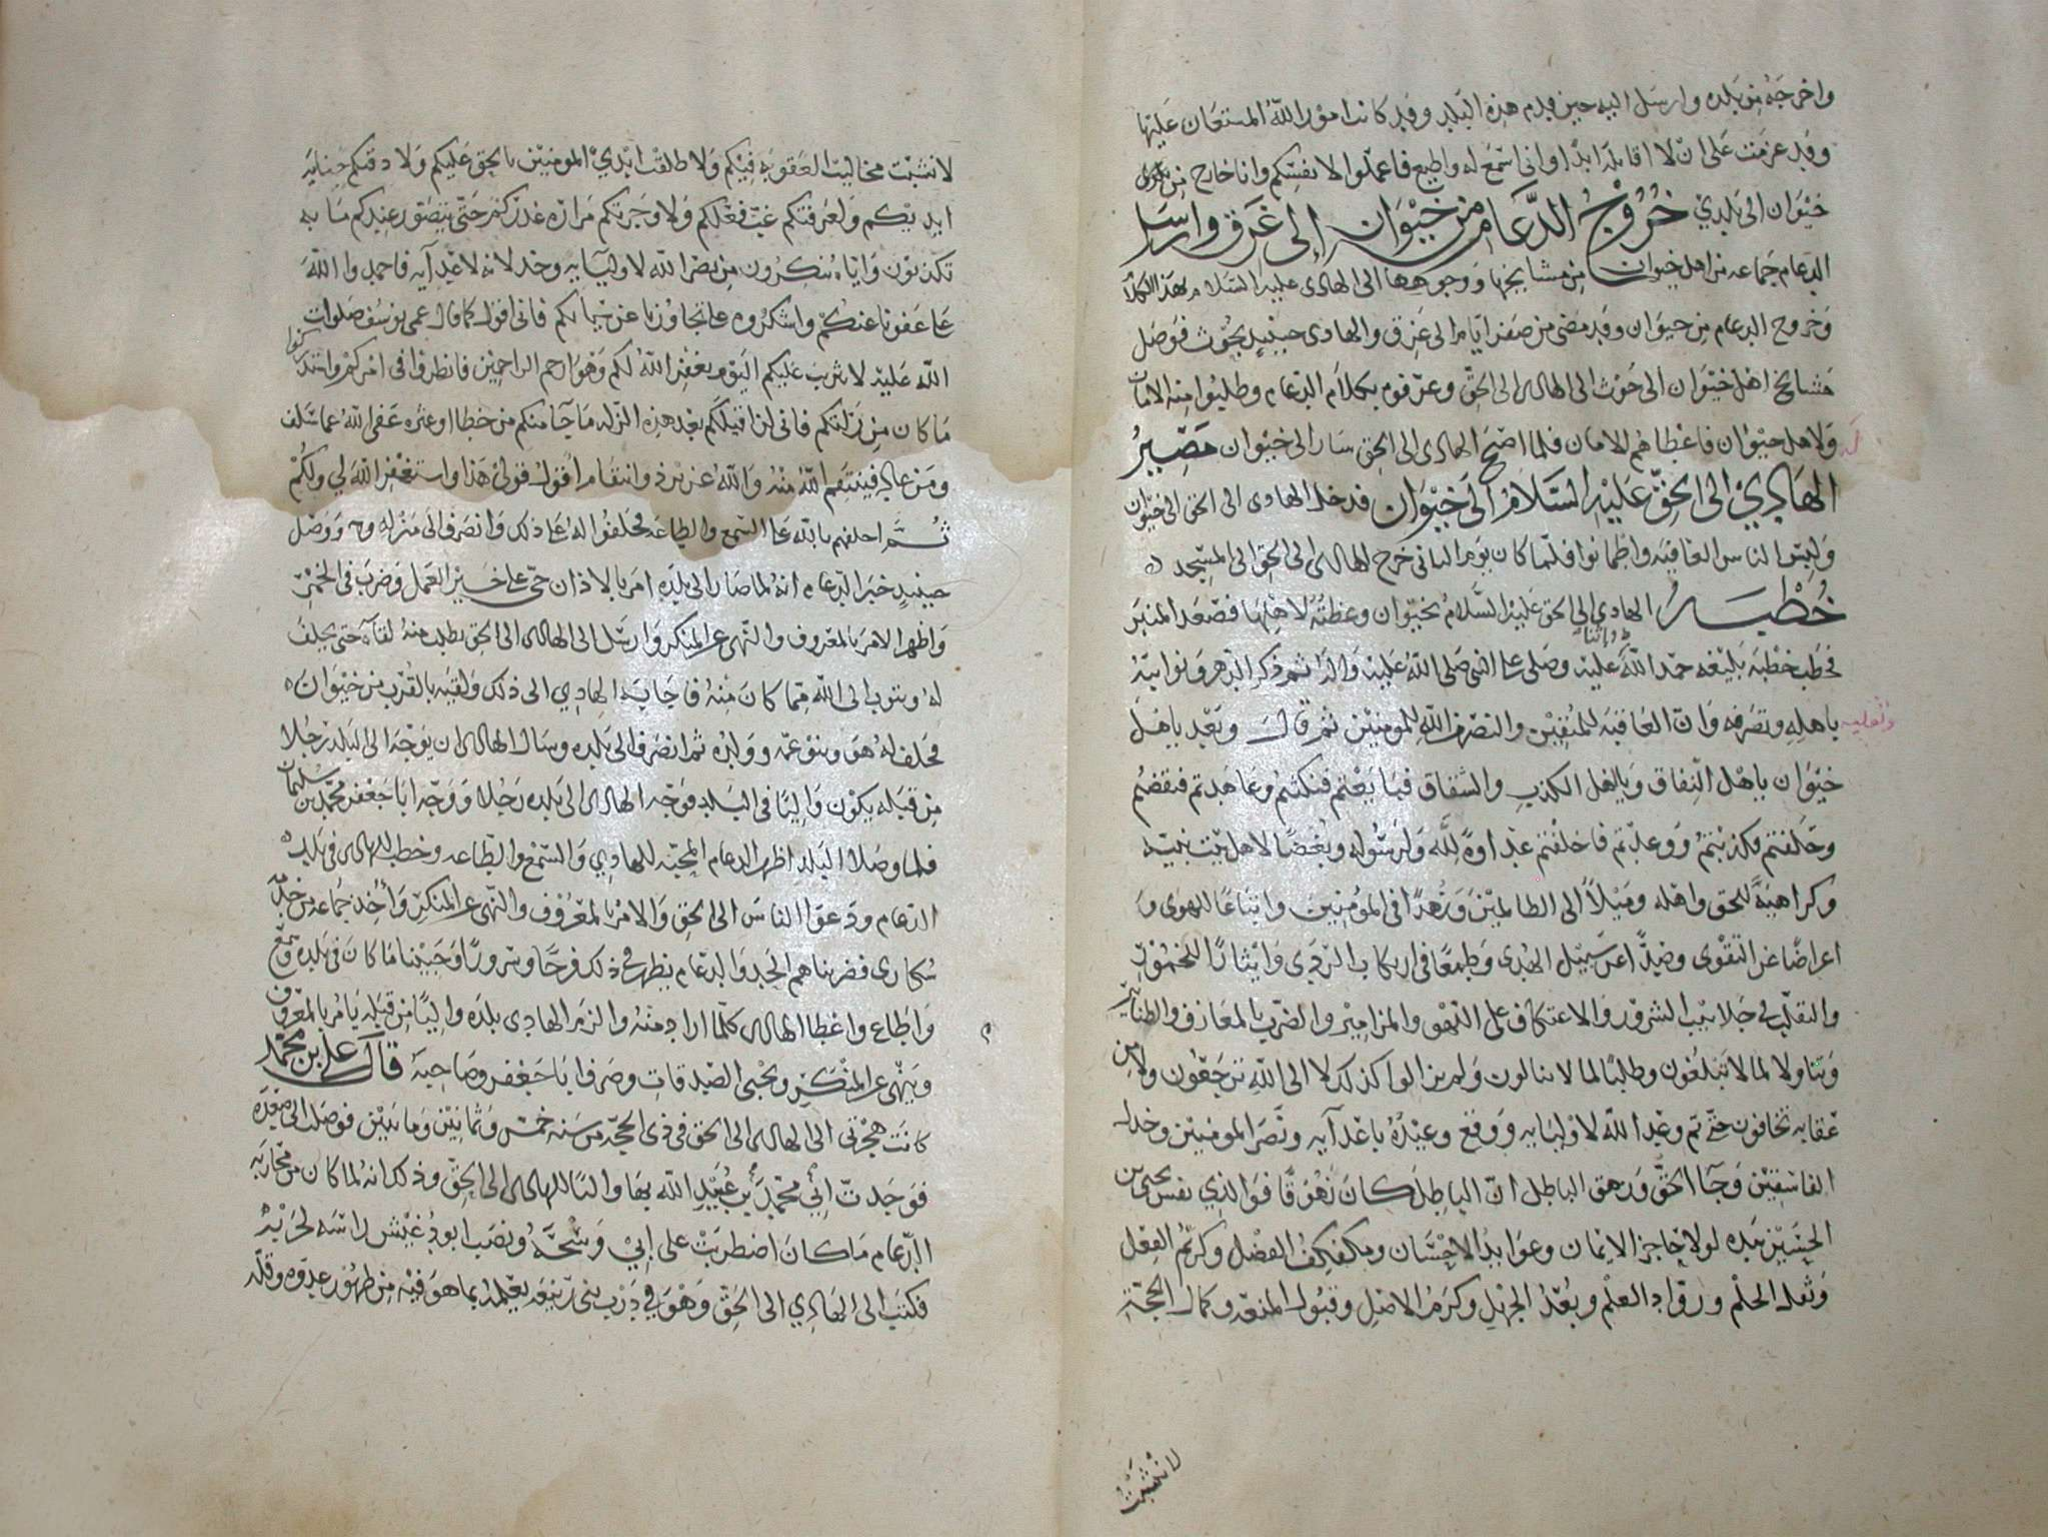 واخرجه من بلده وارسل اليه حين قدم هذه البلد وقد كانت امور الله المستعان عليها
وقد عزمت على ان لا اقاتله ابدا واني اسمع له واطيع فاعملوا لانفسكم وانا خارج من
خيوان الى بلدي خروج الدعام من خيوان الى غرق وارسل
الدعام جماعه من اهل خيوان من مشايخها ووجوهها الى الهادي عليه السلام بهذا الكلام
وخروج الدعام من خيوان وقد مضى من صفر ايام الى غرق والهادي حينيذ بحوث فوصل
مشايخ اهل خيوان الى حوث الى الهادي الى الحق وعرفوه بكلام الدعام وطلبوا منه الامان
ولاهل خيوان فاعطاهم الامان فلما اصبح الهادي الى الحق سار الى خيوان مصير
الهادي الى الحق عليه السلام الى خيوان فدخل الهادي الى الحق الى خيوان
ولبس الناس العافيه واطمانوا فلما كان يوم الثاني خرج الهادي الى الحق الى المسجد
خطبة الهادي الى الحق عليه السلام بخيوان وعظته لاهلها فصعد المنبر
فخطب خطبه بليغه حمد الله واثنا عليه وصلى على النبي صلى الله عليه واله ثم ذكر الدهر ونوايبه
وتقلبه باهله وتصرفه وان العاقبه للمتقين والنصر من الله للمومنين ثم قال وبعد يا هل
خيوان يا هل النفاق ويا اهل الكذب والشقاق فبايعتم فنكثتم وعاهدتم فنقضتم
وحلفتم فكذبتم ووعدتم فاخلفتم عداوة لله ولرسوله وبغضا لاهل بيت نبيه
وكراهية للحق واهله وميلا الى الظالمين وزهدا في المومنين واتباعا للهوى و
اعراضا عن التقوى وضدا عن سبيل الهدى وطمعا في اركاب الردى وايثارا للخمور
والتقلب في جلابيب الشرور والاعتكاف على اللهو والمزامير والضرب بالمعازف والطنابير
وتناولا لما لا تبلغون وطلبا لما لا تنالون ولم يزالوا كذلك لا الى الله ترجعون ولا من
عقابه تخافون حتى تم وعد الله لاوليايه ووقع وعيده باعدايه ونصر المومنين وخذل
الفاسقين وجا الحق وزهق الباطل ان الباطل كان زهوقا فوالذي نفس يحيى بن
الحسين بيده لولا حاجز الايمان وعوايد الاحسان وكرم الفعل
وثقل الحلم ورواد العلم وبعد الجهل وكرم الاصل وقبول المنعه وكمال الحجة
لانشبت
لانشبت مخاليب العقوبه فيكم ولا طلقت ايدي المومنين بالحق عليكم ولا ذقتكم جنايه
ايديكم ولعرفتكم غب فعلكم ولا وجرتكم مرارة غدركم حتى يتصور عندكم ما به
تكذبون واياه تنكرون من نصر الله لاوليايه وخذلانه لاعدايه فاحمدوا الله
على عفونا عنكم واشكروه على تجاوزنا عن جناياتكم فاني اقول كما قال عمي يوسف صلوات
الله عليه لا تثريب عليكم اليوم يغفر الله لكم وهو ارحم الراحمين فانظروا في امركم واستدركوا
ما كان من زلتكم فاني لن اقيلكم بعد هذه الزله ما جآ منكم من خطا او عثره عفى الله عما سلف
ومن عاد فينتقم الله منه والله عزيز ذو انتقام اقول قولي هذا واستغفر الله لي ولكم
ثم احلفهم بالله على السمع والطاعه فحلفوا له على ذلك وانصرف الى منزله ووصل
حينيذ خبر الدعام انه لما صار الى بلده امر بالاذان حي على خير العمل وضرب في الخمر
واظهر الامر بالمعروف والنهي عن المنكر وارسل الى الهادي الى الحق يطلب منه لقاه حتى يحلف
له ويتوب الى الله مما كان منه فاجابه الهادي الى ذلك ولقيه بالقرب من خيوان
فحلف له هو وبنو عمه وولده ثم انصرف الى بلده وسال الهادي ان يوجه الى البلد رجلا
من قبله يكون واليا في البلد فوجه الهادي الى بلده رجلا ووجه ابا جعفر محمد بن سليمان
فلما وصلا البلد اظهر الدعام المحبه للهادي والسمع والطاعه وخطب للهادي في بلد
الدعام ودعو الناس الى الحق والامر بالمعروف والنهي عن المنكر واخذ جماعه من خدم
سكارى فضربناهم الحد والدعام يظهر في ذلك فرحا وسرورا وجبينا ما كان في بلده وسمع
واطاع واعطا الهادي كلما اراد منه والزم الهادي بلده واليا من قبله يامر بالمعروف
وينهى عن المنكر ويجبي الصدقات وصرف ابا جعفر وصاحبه قال علي بن محمد
كانت هجرتي الى الهادي الى الحق في ذي الحجه من سنه خمس وثمانين ومايتين فوصلت الى صعده
فوجدت ابي محمد بن عبيد الله بها واليا للهادي الى الحق وذلك انه لما كان من محاربه
الدعام ما كان اضطربت على ابي وسحه ونصب ابو دغيش راسه لحربه
فكتب الى الهادي الى الحق وهو في درب بني ربيعه يعلمه بما هو فيه من ظهور عدوه وقله